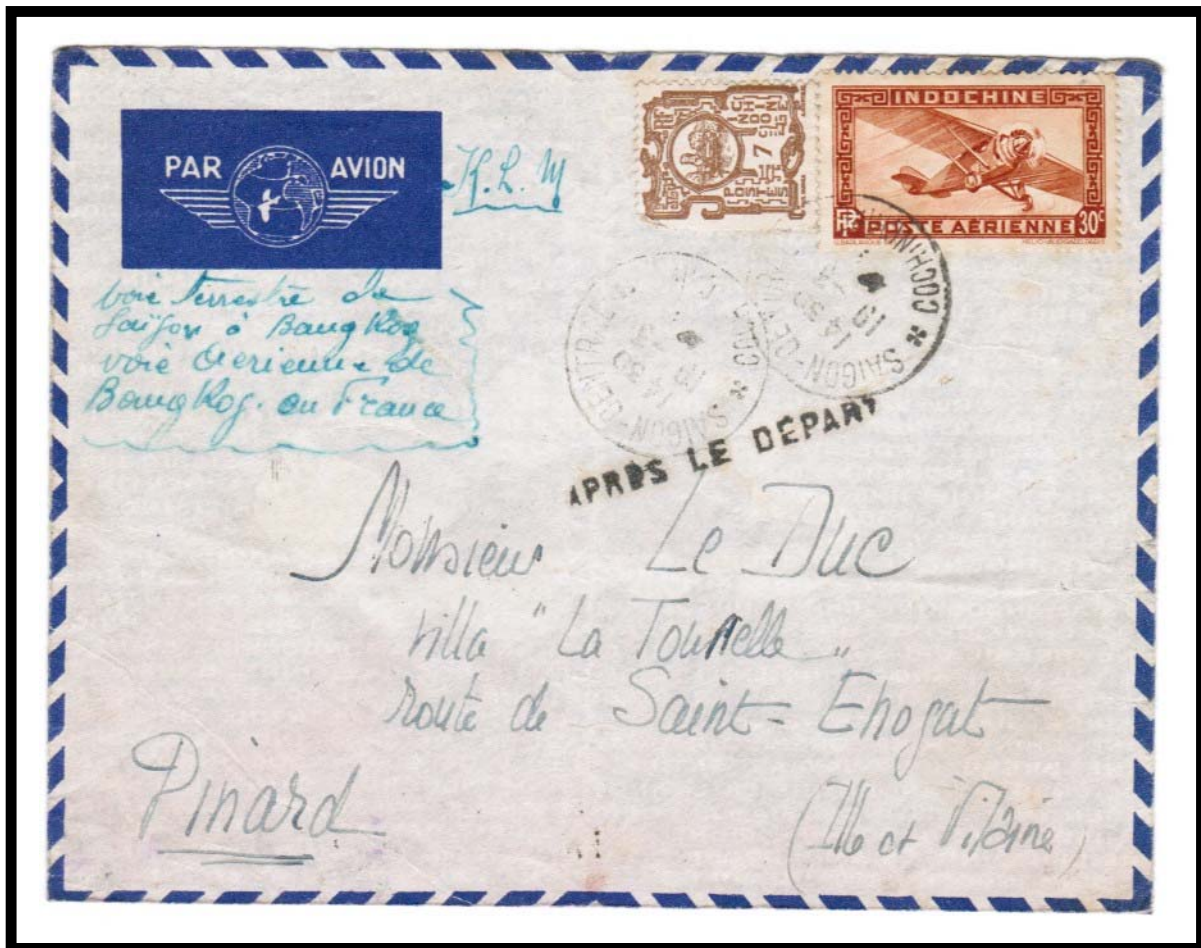 PAR AVION
K.L.M
voie terrestre de
Saïgon à Bangkog
voie aerienne de
Bangkog. en France
INDOCHINE
POSTES
7
INDOCHINE
RF POSTE AÉRIENNE 30c
SAIGON-CENTRAL
COCHINCHINE
SAIGON-CENTRAL
APRÈS LE DÉPART
Monsieur Le Duc
Villa "La Tournelle"
route de Saint-Enogat
Dinard
(Ille et Vilaine)